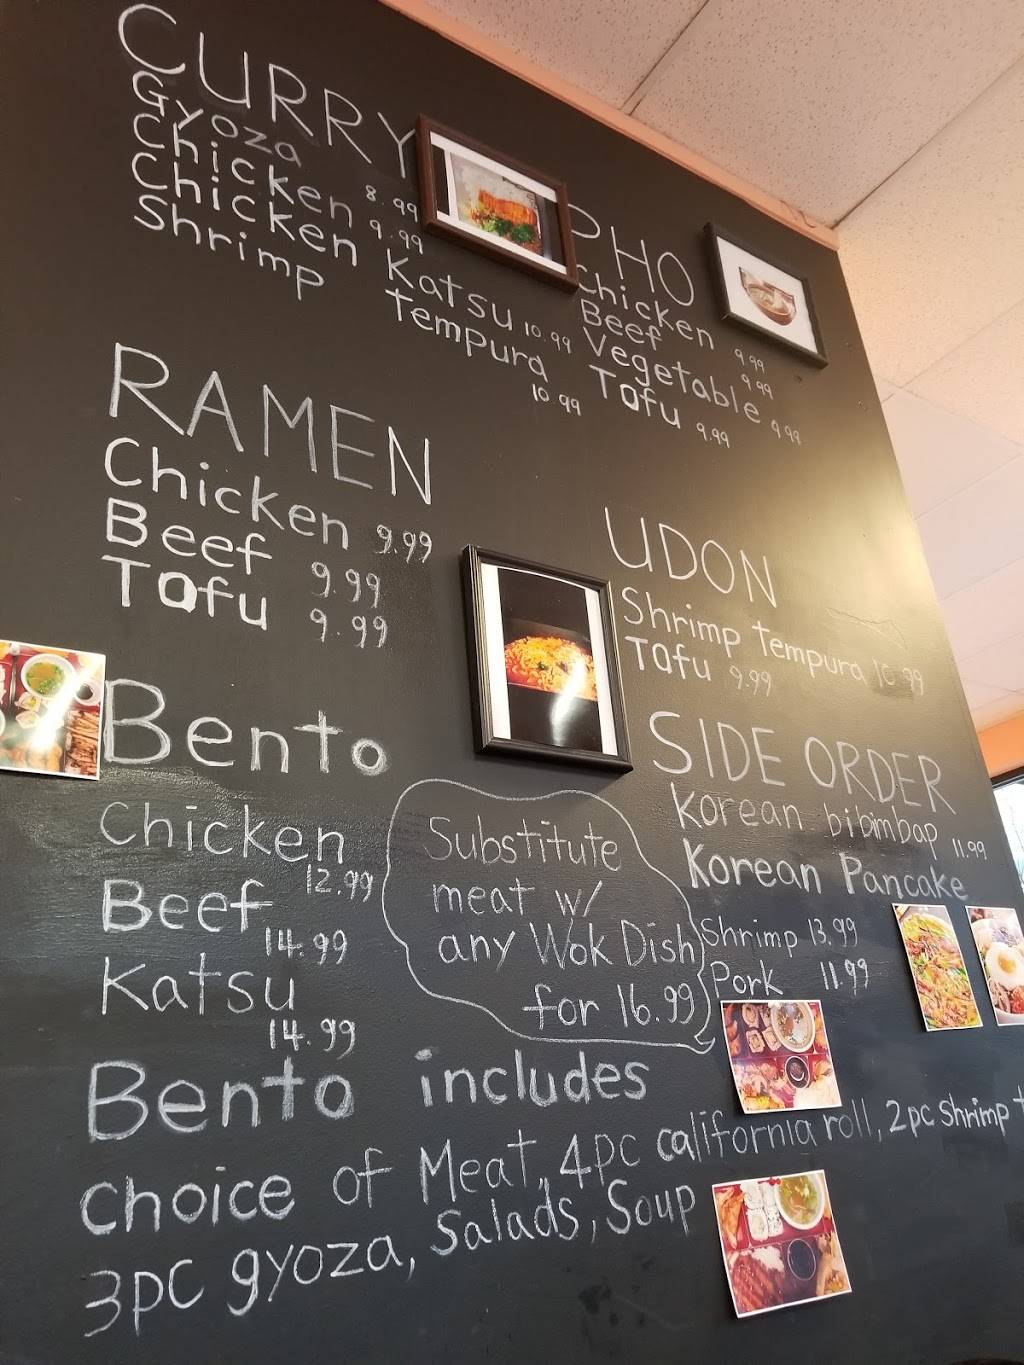 CURRY
Gyoza 8.99
Chicken 9.99
Chicken Katsu 10.99
Shrimp tempura 10.99
PHO
Chicken 9.99
Beef 9.99
Vegetable 9.99
Tofu 9.99
RAMEN
Chicken 9.99
Beef 9.99
Tofu 9.99
UDON
Shrimp tempura 10.99
Tofu 9.99
SIDE ORDER
Korean bibimbap 11.99
Korean Pancake
Shrimp 13.99
Pork 11.99
Bento
Chicken
12.99
Beef
14.99
Katsu
14.99
Substitute
meat w/
any Wok Dish
for 16.99
Bento includes
choice of Meat, 4pc california roll, 2pc shrimp
3pc gyoza, Salads, Soup